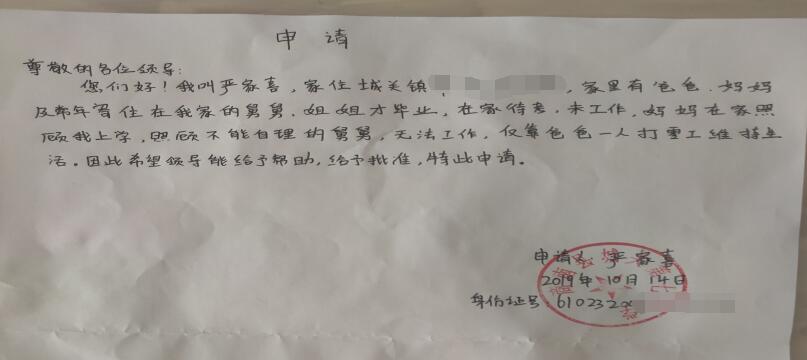 申 请
尊敬的各位领导:
您们好!我叫严家喜,家住城关镇,家里有爸爸.妈妈
及常年寄住在我家的舅舅.姐姐才毕业,在家待考.未工作,妈妈在家照
顾我上学,照顾不能自理的舅舅,无法工作,仅靠爸爸一人打零工维持生
活。因此希望领导能给予帮助,给予批准,特此申请。
申请人:严家喜
2019年10月14日
身份证号:610232